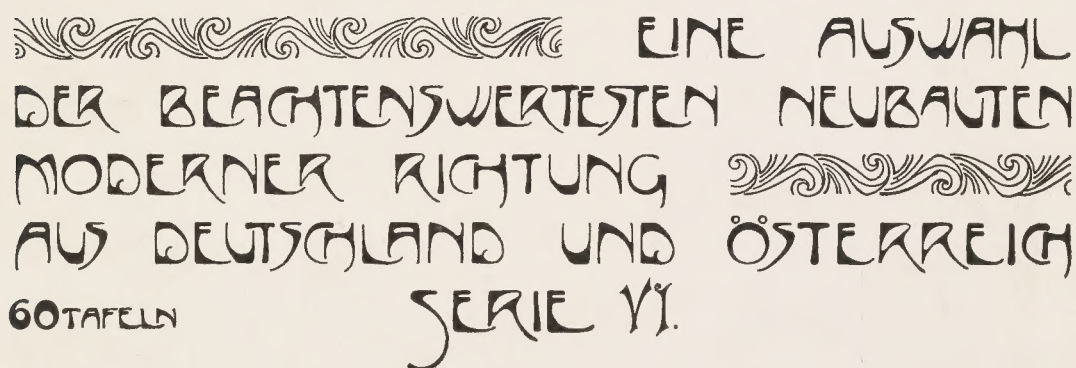 EINE AUSWAHL
DER BEACHTENSWERTESTEN NEUBAUTEN
MODERNER RICHTUNG
AUS DEUTSCHLAND UND ÖSTERREICH
60 TAFELN SERIE VI.